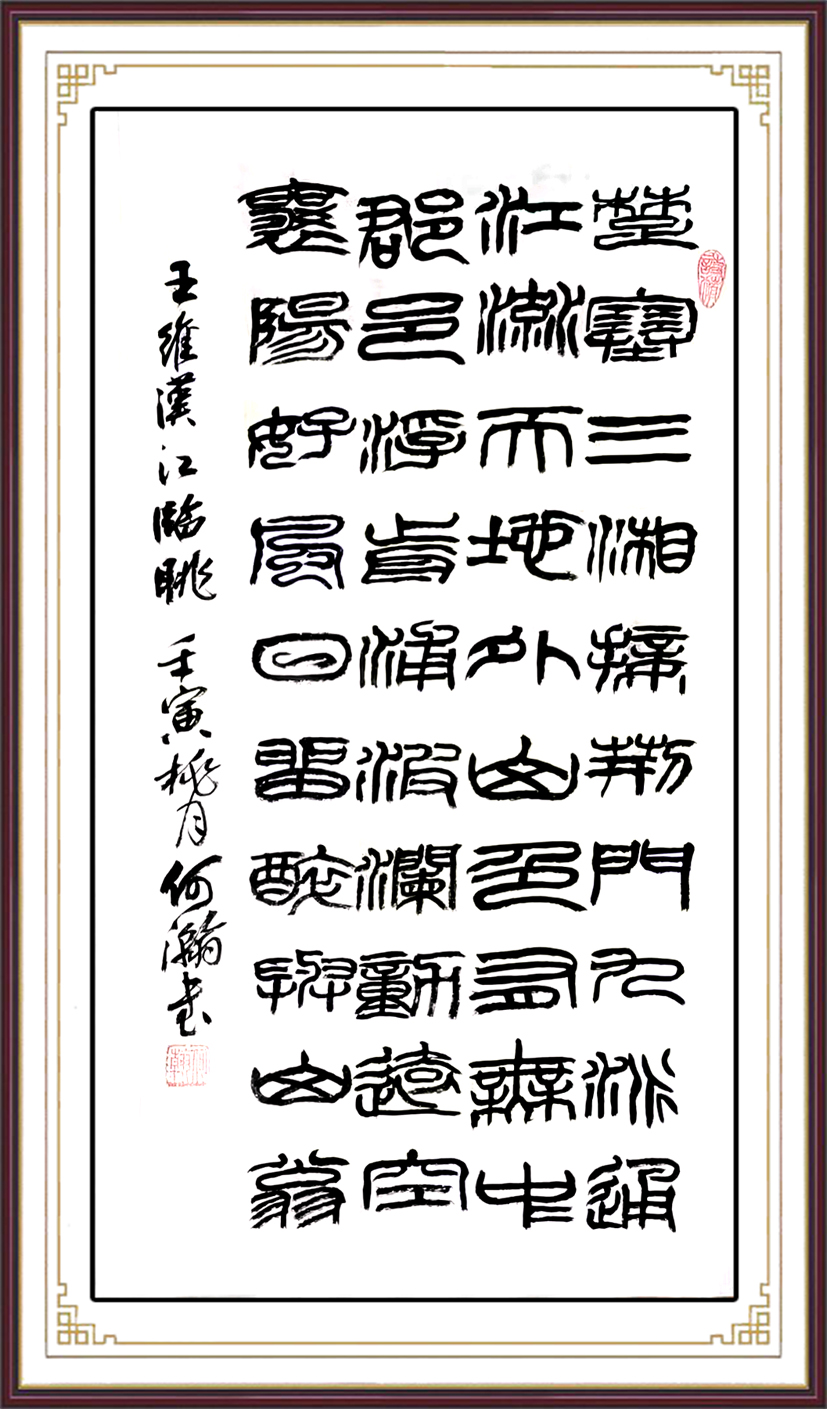 楚塞三湘接荆門九派通
江流天地外山色有無中
郡邑浮前浦波瀾動遠空
襄陽好風日留醉與山翁
王維漢江臨眺 壬寅桃月何瀚书